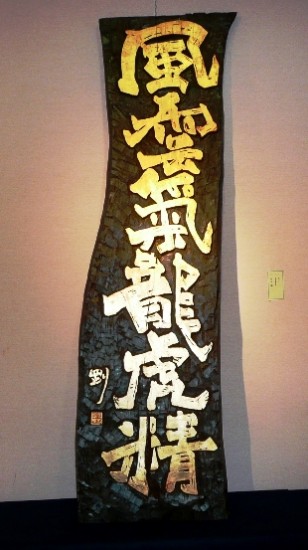 風雲氣龍虎精
剛